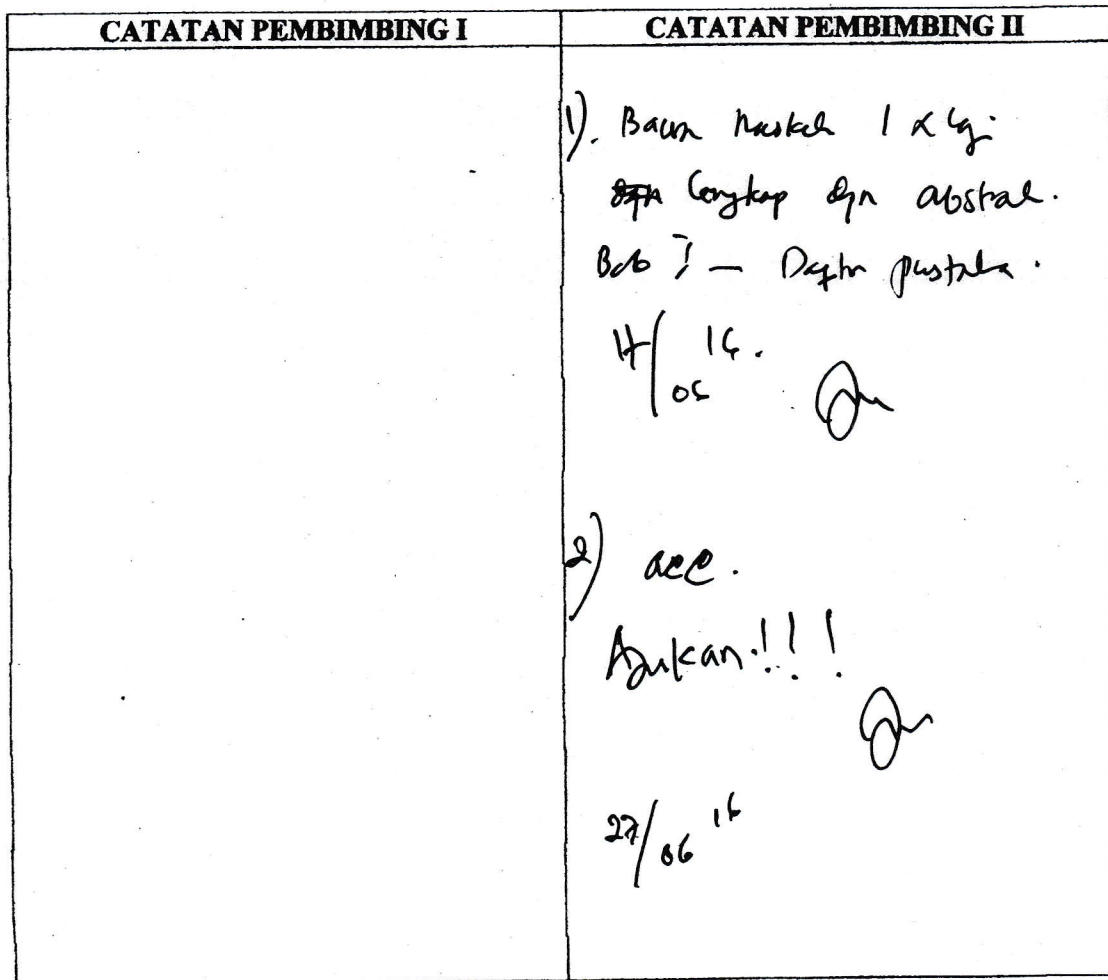 CATATAN PEMBIMBING I
CATATAN PEMBIMBING II
1). Bawa naskah 1 x lgi
lengkap dgn abstrak.
Bab I — Daftar pustaka.
16.
2) acc.
Ajukan!!!
27/06 16